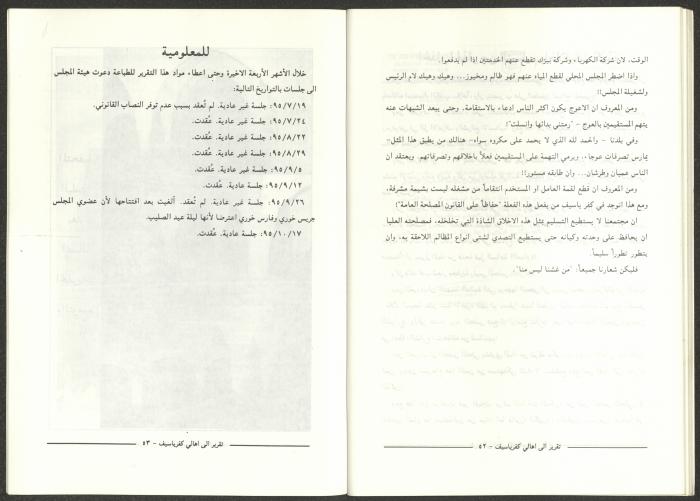 الوقت، لان شركة الكهرباء وشركة بيزك تقطع عنهم الخدمتين اذا لم يدفعوا.
واذا اضطر المجلس المحلي لقطع المياه عنهم فهو ظالم ومخيوز... وهيك وهيك لام الرئيس
ولشغيلة المجلس!!
ومن المعروف ان الاعوج يكون اكثر الناس ادعاء بالاستقامة، وحتى يبعد الشبهات عنه
يتهم المستقيمين بالعوج - "رمتني بدائها وانسلت"!
وفي بلدنا - والحمد لله الذي لا يحمد على مكروه سواه - هنالك من يطبق هذا المثل -
يمارس تصرفات عوجاء، ويرمي التهمة على المستقيمين فعلاً باخلاقهم وتصرفاتهم. ويعتقد ان
الناس عميان وطرشان... وان طابقه مستور!!
ومن المعروف ان قطع لقمة العامل او المستخدم انتقاماً من مشغله ليست بشيمة مشرفة،
ومع هذا انوجد في كفر ياسيف من يفعل هذه الفعلة "حفاظاً على القانون المصلحة العامة"!
ان مجتمعنا لا يستطيع التسليم بمثل هذه الاخلاق الشاذة التي تخلخله، فمصلحته العليا
ان يحافظ على وحدته وكيانه حتى يستطيع التصدي لشتى انواع المظالم اللاحقة به، وان
يتطور تطوراً سليماً.
فليكن شعارنا جميعاً: "من غشنا ليس منا".
تقرير الى اهالي كفرياسيف - ٥٢
للمعلومية
خلال الأشهر الأربعة الاخيرة وحتى اعطاء مواد هذا التقرير للطباعة دعوت هيئة المجلس
الى جلسات بالتواريخ التالية:
٩٥/٧/١٩: جلسة غير عادية. لم تُعقد بسبب عدم توفر النصاب القانوني.
٩٥/٧/٢٤: جلسة غير عادية. عُقدت.
٩٥/٨/٢٢: جلسة غير عادية. عُقدت.
٩٥/٨/٢٩: جلسة غير عادية. عُقدت.
٩٥/٩/٥: جلسة عادية. عُقدت.
٩٥/٩/١٢: جلسة عادية. عُقدت.
٩٥/٩/٢٦: جلسة غير عادية. لم تُعقد. ألغيت بعد افتتاحها لأن عضوي المجلس
جريس خوري وفارس خوري اعترضا لأنها ليلة عيد الصليب.
٩٥/١٠/١٧: جلسة عادية. عُقدت.
تقرير الى اهالي كفرياسيف - ٥٣